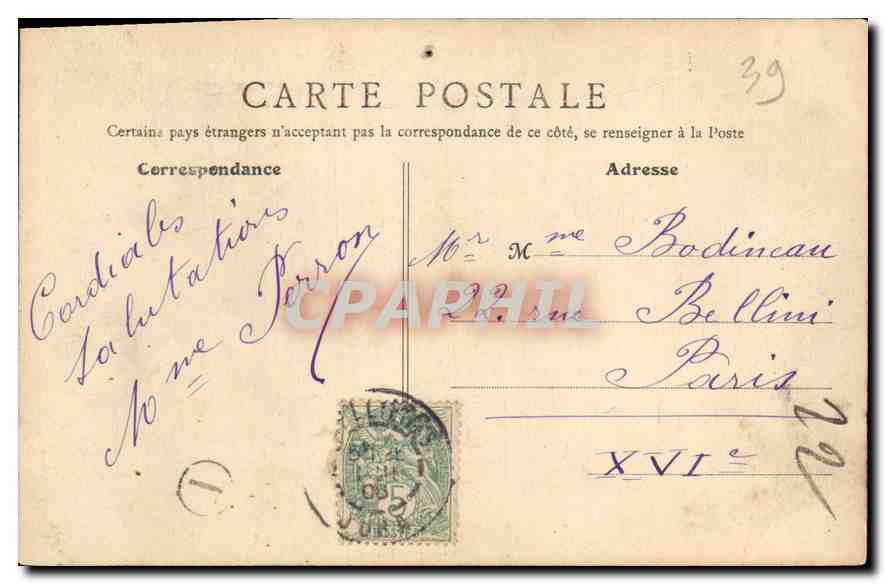 39
CARTE POSTALE
Certains pays étrangers n'acceptant pas la correspondance de ce côté, se renseigner à la Poste
Correspondance
Adresse
Cordiales
salutations
Mme Perron
Mr Mme Bodineau
22. rue Bellini
Paris
XVIe
22
CPAPHIL
1
5
JURA